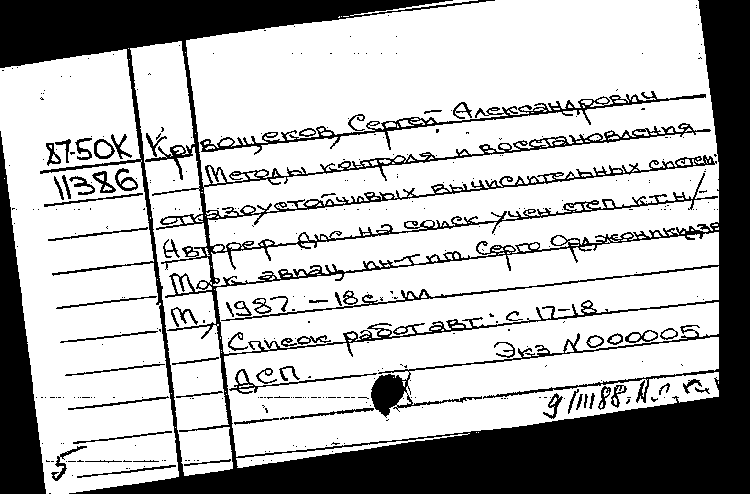 87-50К Кривощеков, Сергей Александрович
11386 Методы контроля и восстановления
отказоустойчивых вычислительных систем:
Автореф. дис. на соиск. учен. степ. к.т.н./-
Моск. авиац. ин-т им. Серго Орджоникидзе
М., 1987. - 18с.: ил.
Список работ авт.: с. 17-18.
ДСП. Экз N000005.
9/III88.
5